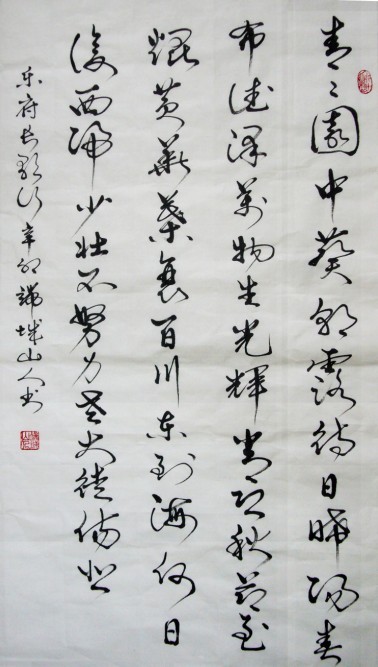 青々園中葵朝露待日晞陽春
布德澤萬物生光輝常恐秋節至
焜黄華葉衰百川東到海何日
復西歸少壯不努力老大徒傷悲
乐府长歌行辛卯端城山人书